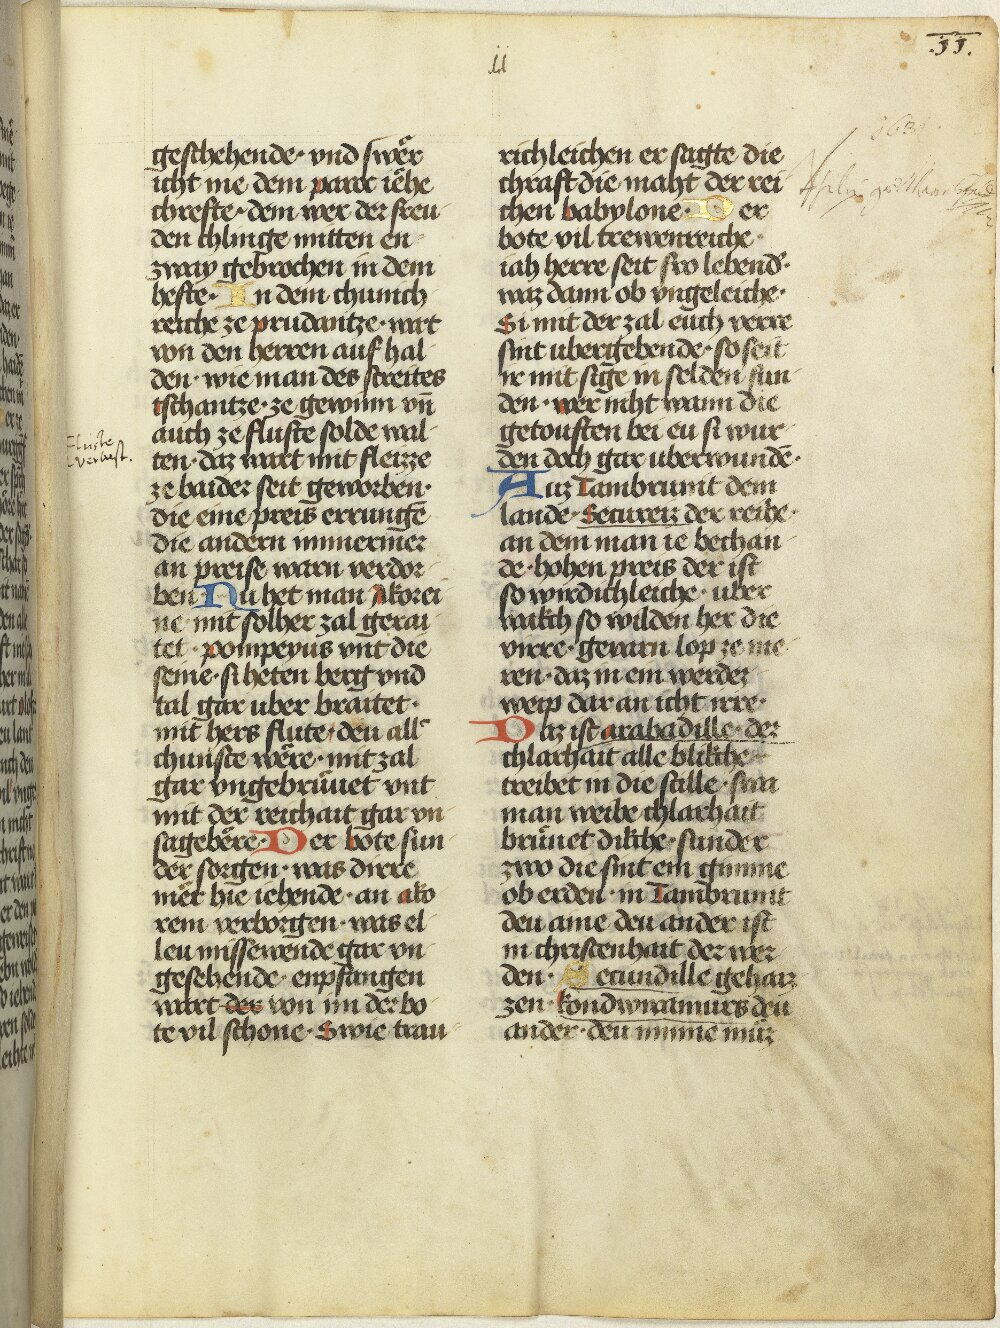 .II.
ii
geschehende · vnd swer
icht me dem paroc iehe
chrefte · dem wer der freu
den chlinge mitten en
zway gebrochen in dem
hefte · In dem chunich
reiche ze prudantze · wirt
von den herren auf hal
den · wie man des streites
tschantze · ze gewinn vn̄
auch ze fluste solde wal
ten · daz wart mit fleizze
ze baider seit geworben ·
die eine preis errungē
die andern immermer
an preise warn verdor
ben · Nu het man Akorei
ne mit solher zal gerai
tet · pompeyus vnt die
seine · si heten berg vnd
tal gar uber braitet ·
mit hers flute · den all
chunste were · mit zal
gar vngebruuet vnt
mit der reichait gar vn
sagebere · Der bote sun
der sorgen · was dirre
mer hie iehende · an ako
rein verborgen · was el
leu missewende gar vn
gesehende · enpfangen
wart der von im der bo
te vil schone · Swie trau
fluste
verlust.
richleichen er sagte die
chraft die maht der rei
chen babylone · Der
bote vil trewenreiche ·
iah herre seit swo lebend ·
waz dann ob vngeleiche ·
Si mit der zal euch verre
sint ubergebende · so seit
ir mit sige in selden fun
den · wer niht wann die
getouften bei eu si wur
den doch gar uberwundē ·
Auz Tambrunit dem
lande · Secureiz der reihe ·
an dem man ie bechan
de · hohen preis der ist
so wirdichleiche · uber
walch so wilden her die
virre · gevarn lop ze me
ren · daz in ein werdez
weip dar an icht irre ·
Diz ist arabadille · der
chlarhait alle blikche
treibet in die stille · swa
man weibe chlarhait
bruuet dikche · sunder
zwo die sint ein gimme
ob erden · in Tambrunit
deu aine deu ander ist
in christenhait der wer
den · Secundille gehaiz
zen · kondwiramurs deu
ander · deu minne muz